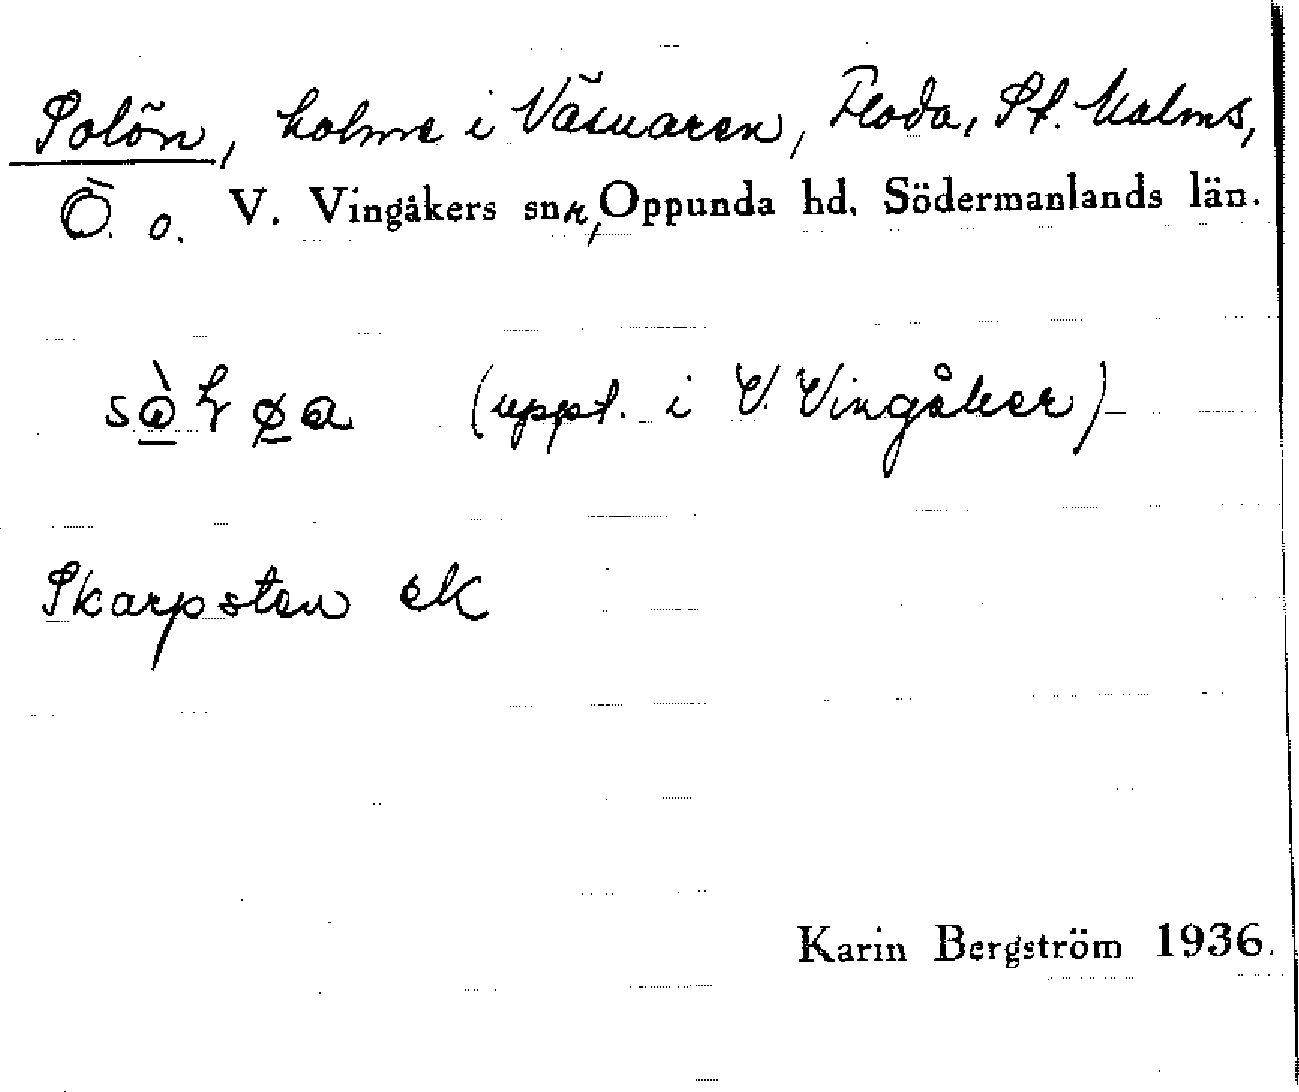 Solön, holme i Väsnaren, Floda, St. Malms,
Ö. o. V. Vingåkers snr, Oppunda hd. Södermanlands län.
(uppt. i V. Vingåker)
Skarpsten ek
Karin Bergström 1936.